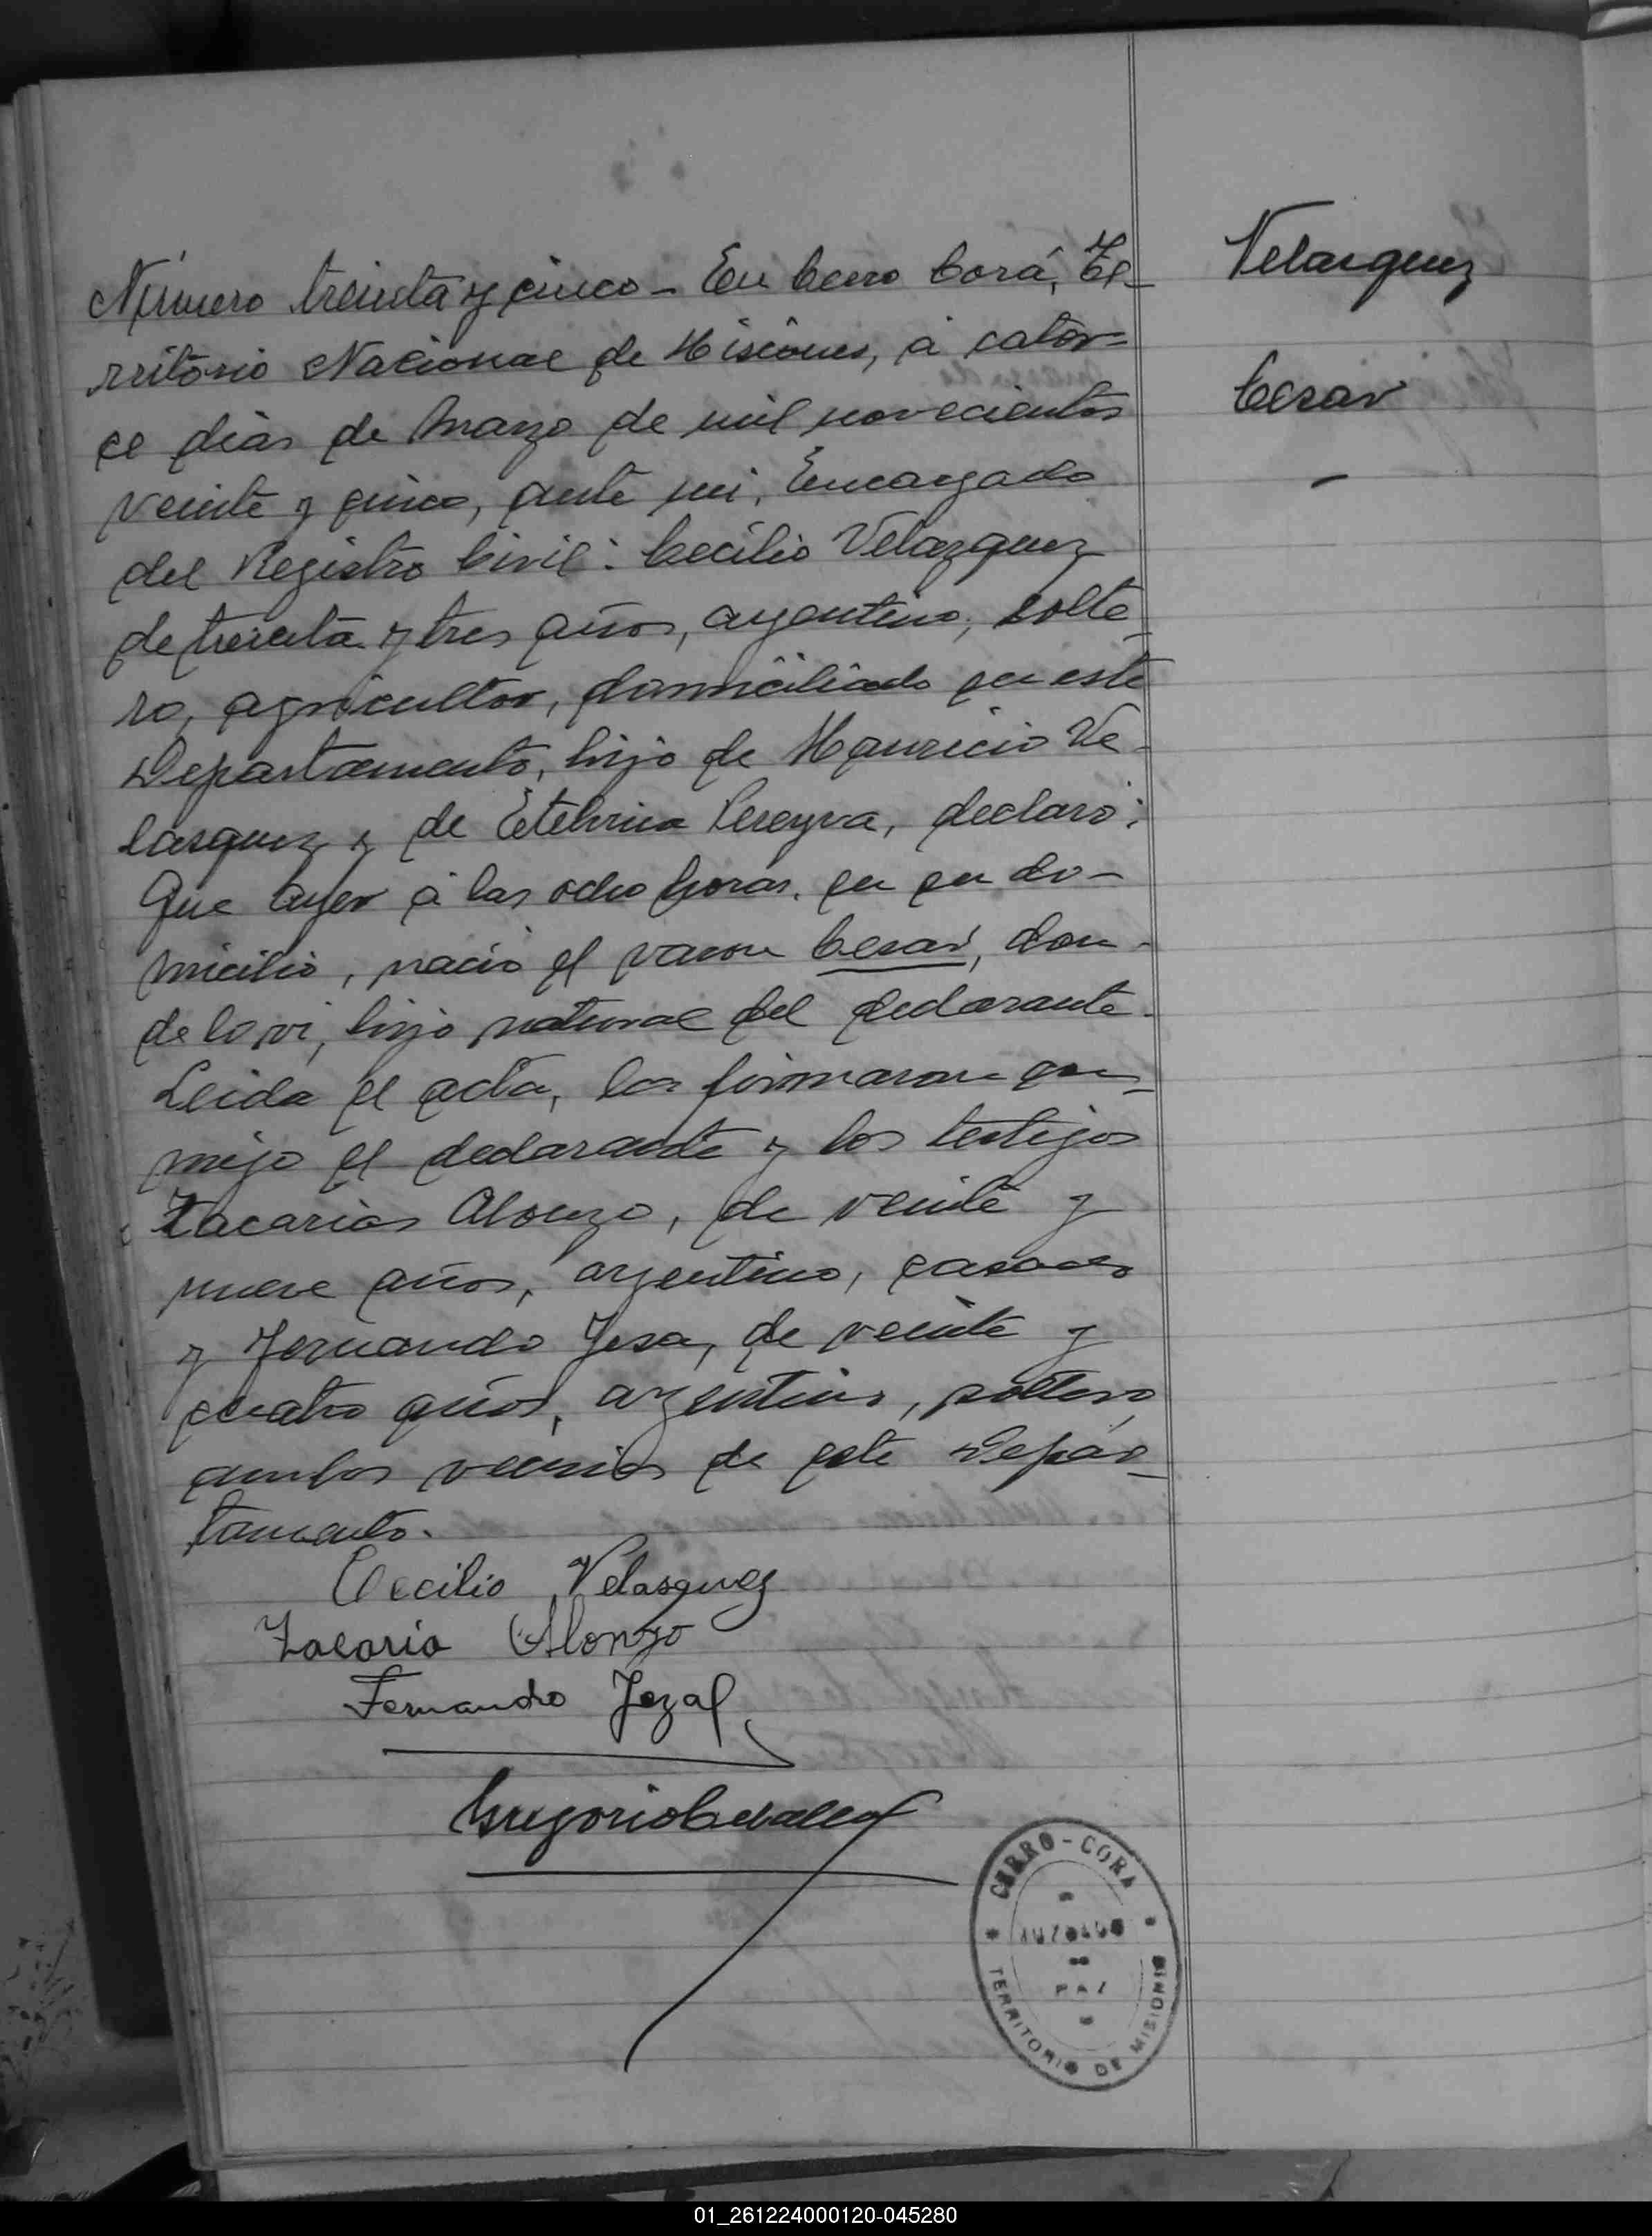 Número treinta y cinco - En Cerro Corá, Te-
rritorio Nacional de Misiones, á cator-
ce dias de Marzo de mil novecientos
veinte y cinco, ante mi, Encargado
del Registro Civil: Cecilio Velazquez
de treinta y tres años, argentino, solte-
ro, agricultor, domiciliado en este
Departamento, hijo de Mauricio Ve-
lasquez y de Etelvina Pereyra, declaró:
Que ayer á las ocho horas, en su do-
micilio, nació el varon Cesar, don-
de lo vi, hijo natural del declarante.
Leida el acta, la firmaron con-
migo el declarante y los testigos
Zacarias Alonzo, de veinte y
nueve años, argentino, casado
y Fernando Jesa, de veinte y
cuatro años, argentino, soltero
ambos vecinos de este Depar-
tamento.
Cecilio Velasquez
Zacaria Alonzo
Fernando Jezal
Gregorio
Velasquez
Cesar
CERRO-CORA
JUZGADO
DE
PAZ
TERRITORIO DE MISIONES
01_261224000120-045280